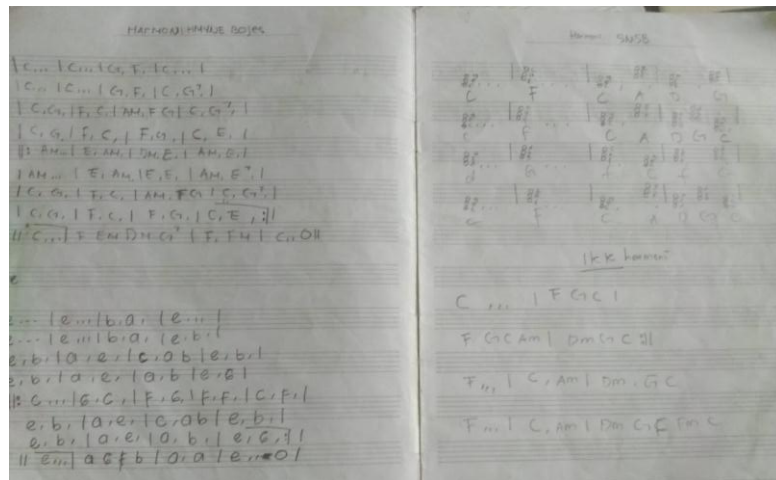 HARMONI HMVNE BOJES
| C... | C... | G, F, | C... |
| C... | C... | G, F, | C, G⁷, |
| C, G, | F, C, | AM, F G | C, G⁷, |
| C, G, | F, C, | F, G, | C, E, |
||: AM... | E, AM, | DM, E, | AM, E, |
| AM... | E, AM, | E, E, | AM, E⁷, |
| C, G, | F, C, | AM, FG | C, G⁷, |
| C, G, | F, C, | F, G, | C, E, :||
|| C... | F EM DM G⁷ | F, FM | C,, O ||
e... | e... | b, a, | e... |
e... | e... | b, a, | e, b, |
e, b, | a, e, | c, a b | e, b, |
e, b, | a, e, | a, b, | e, G |
||: C... | G, C, | F, G, | F, F, | C, F, |
e, b, | a, e, | c, ab | e, b, |
e, b, | a, e, | a, b, | e, G, :||
|| e... | a G f b | a, a | e,, O |
Harmoni SNSB
C F C A D G
C F C A D G C
d G f C f C
C F C A D G C
1KK harmoni
C ,,, | F G C |
F G C Am | Dm G C :||
F ,,, | C, Am | Dm, G C
F ,,, | C, Am | Dm G F Fm C